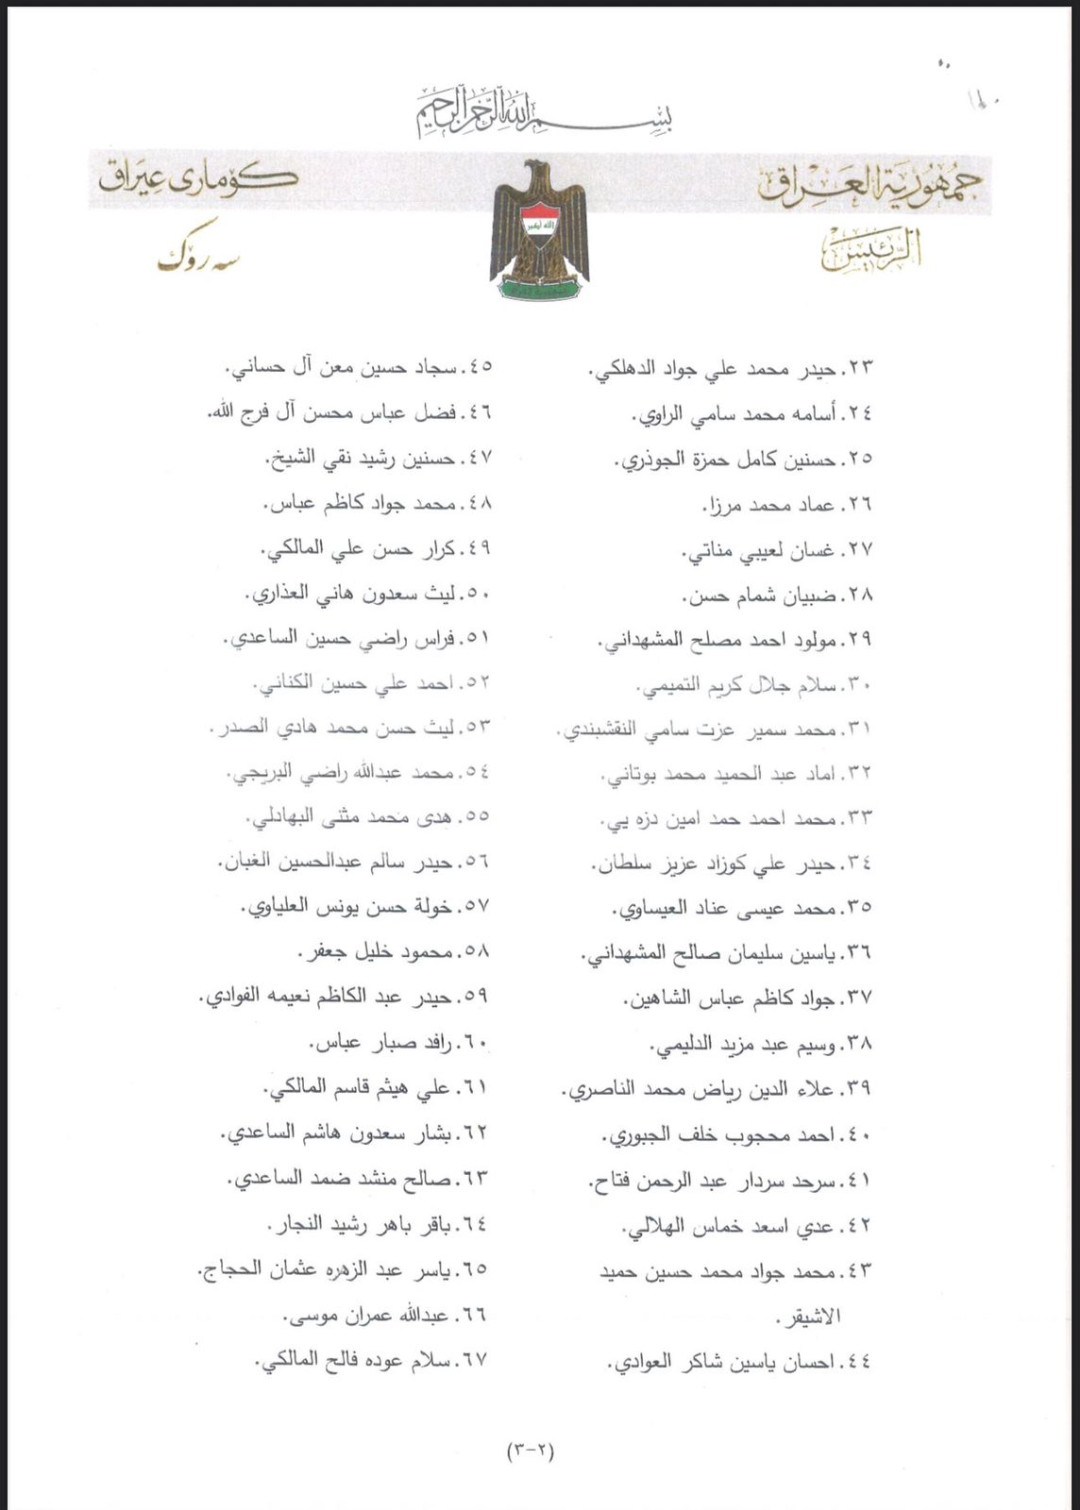 بسم الله الرحمن الرحيم
جمهورية العراق
الرئيس
كۆماری عێراق
سەرۆک
٢٣. حيدر محمد علي جواد الدهلكي.
٢٤. أسامه محمد سامي الراوي.
٢٥. حسنين كامل حمزة الجوذري.
٢٦. عماد محمد مرزا.
٢٧. غسان لعيبي مناتي.
٢٨. ضبيان شمام حسن.
٢٩. مولود احمد مصلح المشهداني.
٣٠. سلام جلال كريم التميمي.
٣١. محمد سمير عزت سامي النقشبندي.
٣٢. اماد عبد الحميد محمد بوتاني.
٣٣. محمد احمد حمد امين دزه يي.
٣٤. حيدر علي كوزاد عزيز سلطان.
٣٥. محمد عيسى عناد العيساوي.
٣٦. ياسين سليمان صالح المشهداني.
٣٧. جواد كاظم عباس الشاهين.
٣٨. وسيم عبد مزيد الدليمي.
٣٩. علاء الدين رياض محمد الناصري.
٤٠. احمد محجوب خلف الجبوري.
٤١. سرحد سردار عبد الرحمن فتاح.
٤٢. عدي اسعد خماس الهلالي.
٤٣. محمد جواد محمد حسين حميد
الاشيقر.
٤٤. احسان ياسين شاكر العوادي.
٤٥. سجاد حسين معن آل حساني.
٤٦. فضل عباس محسن آل فرج الله.
٤٧. حسنين رشيد نقي الشيخ.
٤٨. محمد جواد كاظم عباس.
٤٩. كرار حسن علي المالكي.
٥٠. ليث سعدون هاني العذاري.
٥١. فراس راضي حسين الساعدي.
٥٢. احمد علي حسين الكناني.
٥٣. ليث حسن محمد هادي الصدر.
٥٤. محمد عبدالله راضي البريجي.
٥٥. هدى محمد مثنى البهادلي.
٥٦. حيدر سالم عبدالحسين الغبان.
٥٧. خولة حسن يونس العلياوي.
٥٨. محمود خليل جعفر.
٥٩. حيدر عبد الكاظم نعيمه الفوادي.
٦٠. رافد صبار عباس.
٦١. علي هيثم قاسم المالكي.
٦٢. بشار سعدون هاشم الساعدي.
٦٣. صالح منشد ضمد الساعدي.
٦٤. باقر باهر رشيد النجار.
٦٥. ياسر عبد الزهره عثمان الحجاج.
٦٦. عبدالله عمران موسى.
٦٧. سلام عوده فالح المالكي.
(٢-٣)